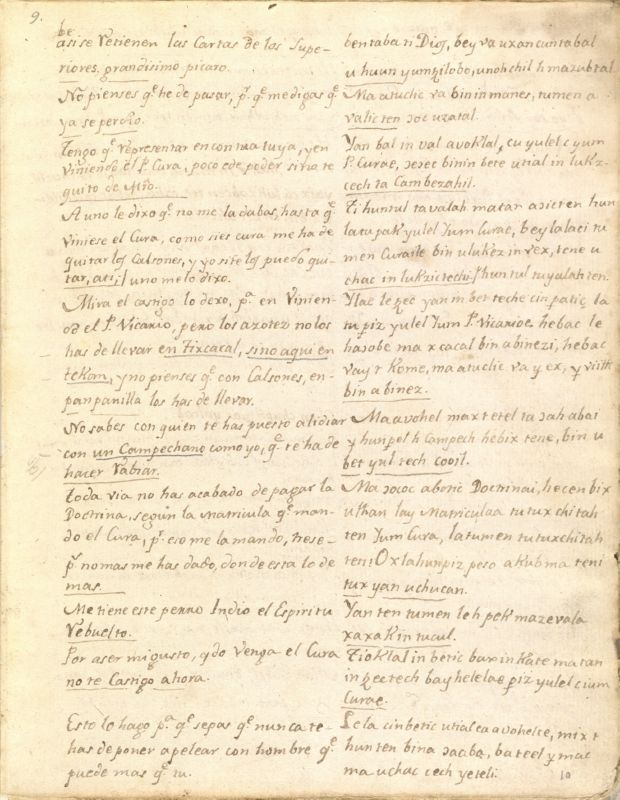 9.
be
asi se Retienen las Cartas de los Supe-
riores. grandisimo picaro.
No pienses q.e te de pasar, p.r q.e me digas q.e
ya se perdio.
Tengo q.e representar en contra tuya, y en
Viniendo el P. Cura, poco e de poder si no te
quito de
A uno le dixo q.e no me la dabas, hasta q.e
Viniese el Cura, como si es cura me ha de
quitar los Calsones, y yo si te los puedo qui-
tar, ati;/ uno me lo dixo.
Mira el castigo lo dexo, p.a en Vinien-
do el P. Vicario, pero los azotez no los
has de llevar en Tixcacal, sino aqui en
tekom, y no pienses q.e con Calsones, en-
panpanilla los has de llevar.
No sabes con quien te has puesto a lidiar
con un Campechano como yo, q.e te ha de
hacer Rabiar.
toda via no has acabado de pagar la
Doctrina, según la Matricula q.e man-
do el Cura, p.r eso me la mando, trese-
p.s no mas me has dado, donde esta lo de
mas.
Me tiene este perro Indio el Espiritu
Rebuelto.
Por aser mi gusto, q.do venga el Cura
no te Castigo ahora.
Esto lo hago p.a q.e sepas q.e nunca te-
has de poner a pelear con hombre q.e
puede mas q.e tu.
bentaba ti Dios, bey va uxan cuntabal
u huun yumzilobo, unohchil h mazubtal.
Ma a tuclic va bin in manes, tumen a
valic ten zoc uzatal.
Yan bal in val avoklal, cu yulel c yum
P. Curae, bin in bete utial in lukz-
cech ta Cambezahil.
Ti huntul ta valah matan azic ten hun
latu pak yulel Yum Curae, bey lalaci tu
men Curaile bin ulukez in vex, tene u
chac in lukzic techi;/ huntul tu yalah ten.
Ylae le zec yan in bet teche cin patic, la
tu piz yulel Yum P. Vicarioe. hebac le
hazobe ma x cacal bin abinezi, hebac
vay t Kome, ma a tuclic va y ex, y viith
bin abinez.
Ma avohel max t etel ta zah abai
y hunpel h Campech hebix tene, bin u
bet yul tech cooil.
Ma zococ abotic Doctrinai, hecen bix
u than lay Matriculaa tu tuxchitah
ten Yum Cura, latumen tu tuxchitah
ten: Oxlahunpiz peso a kubma teni
tux yan uchucan.
Yan ten tumen leh pek mazevala
xaxak in tucul.
Tioklal in betic bax in kate matan
in zectech bay helelae piz yulel ci um
Curae.
Lela cin betic utial ca avohelte, mix t
hunten bin a zaaba, bateel y mac
ma uchac cech yeteli.
10